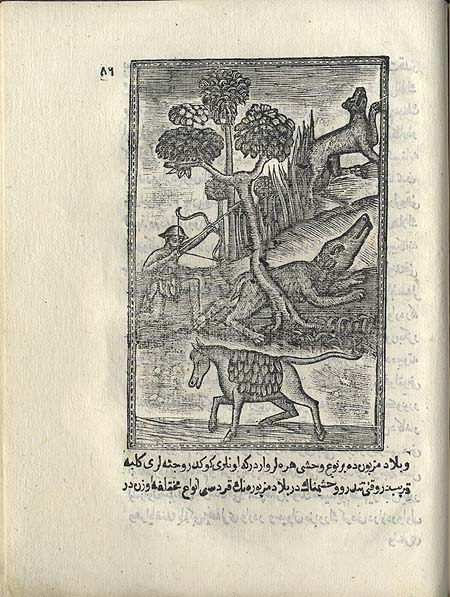 ٨٦
وبلاد مزبوره ده بر نوع وحشی هره لر واردر که لونلری کوکدر وجثه لری کلبه
قریبدر تندرو وخشمناك در بلاد مزبوره نك قرده سی انواع مختلفه